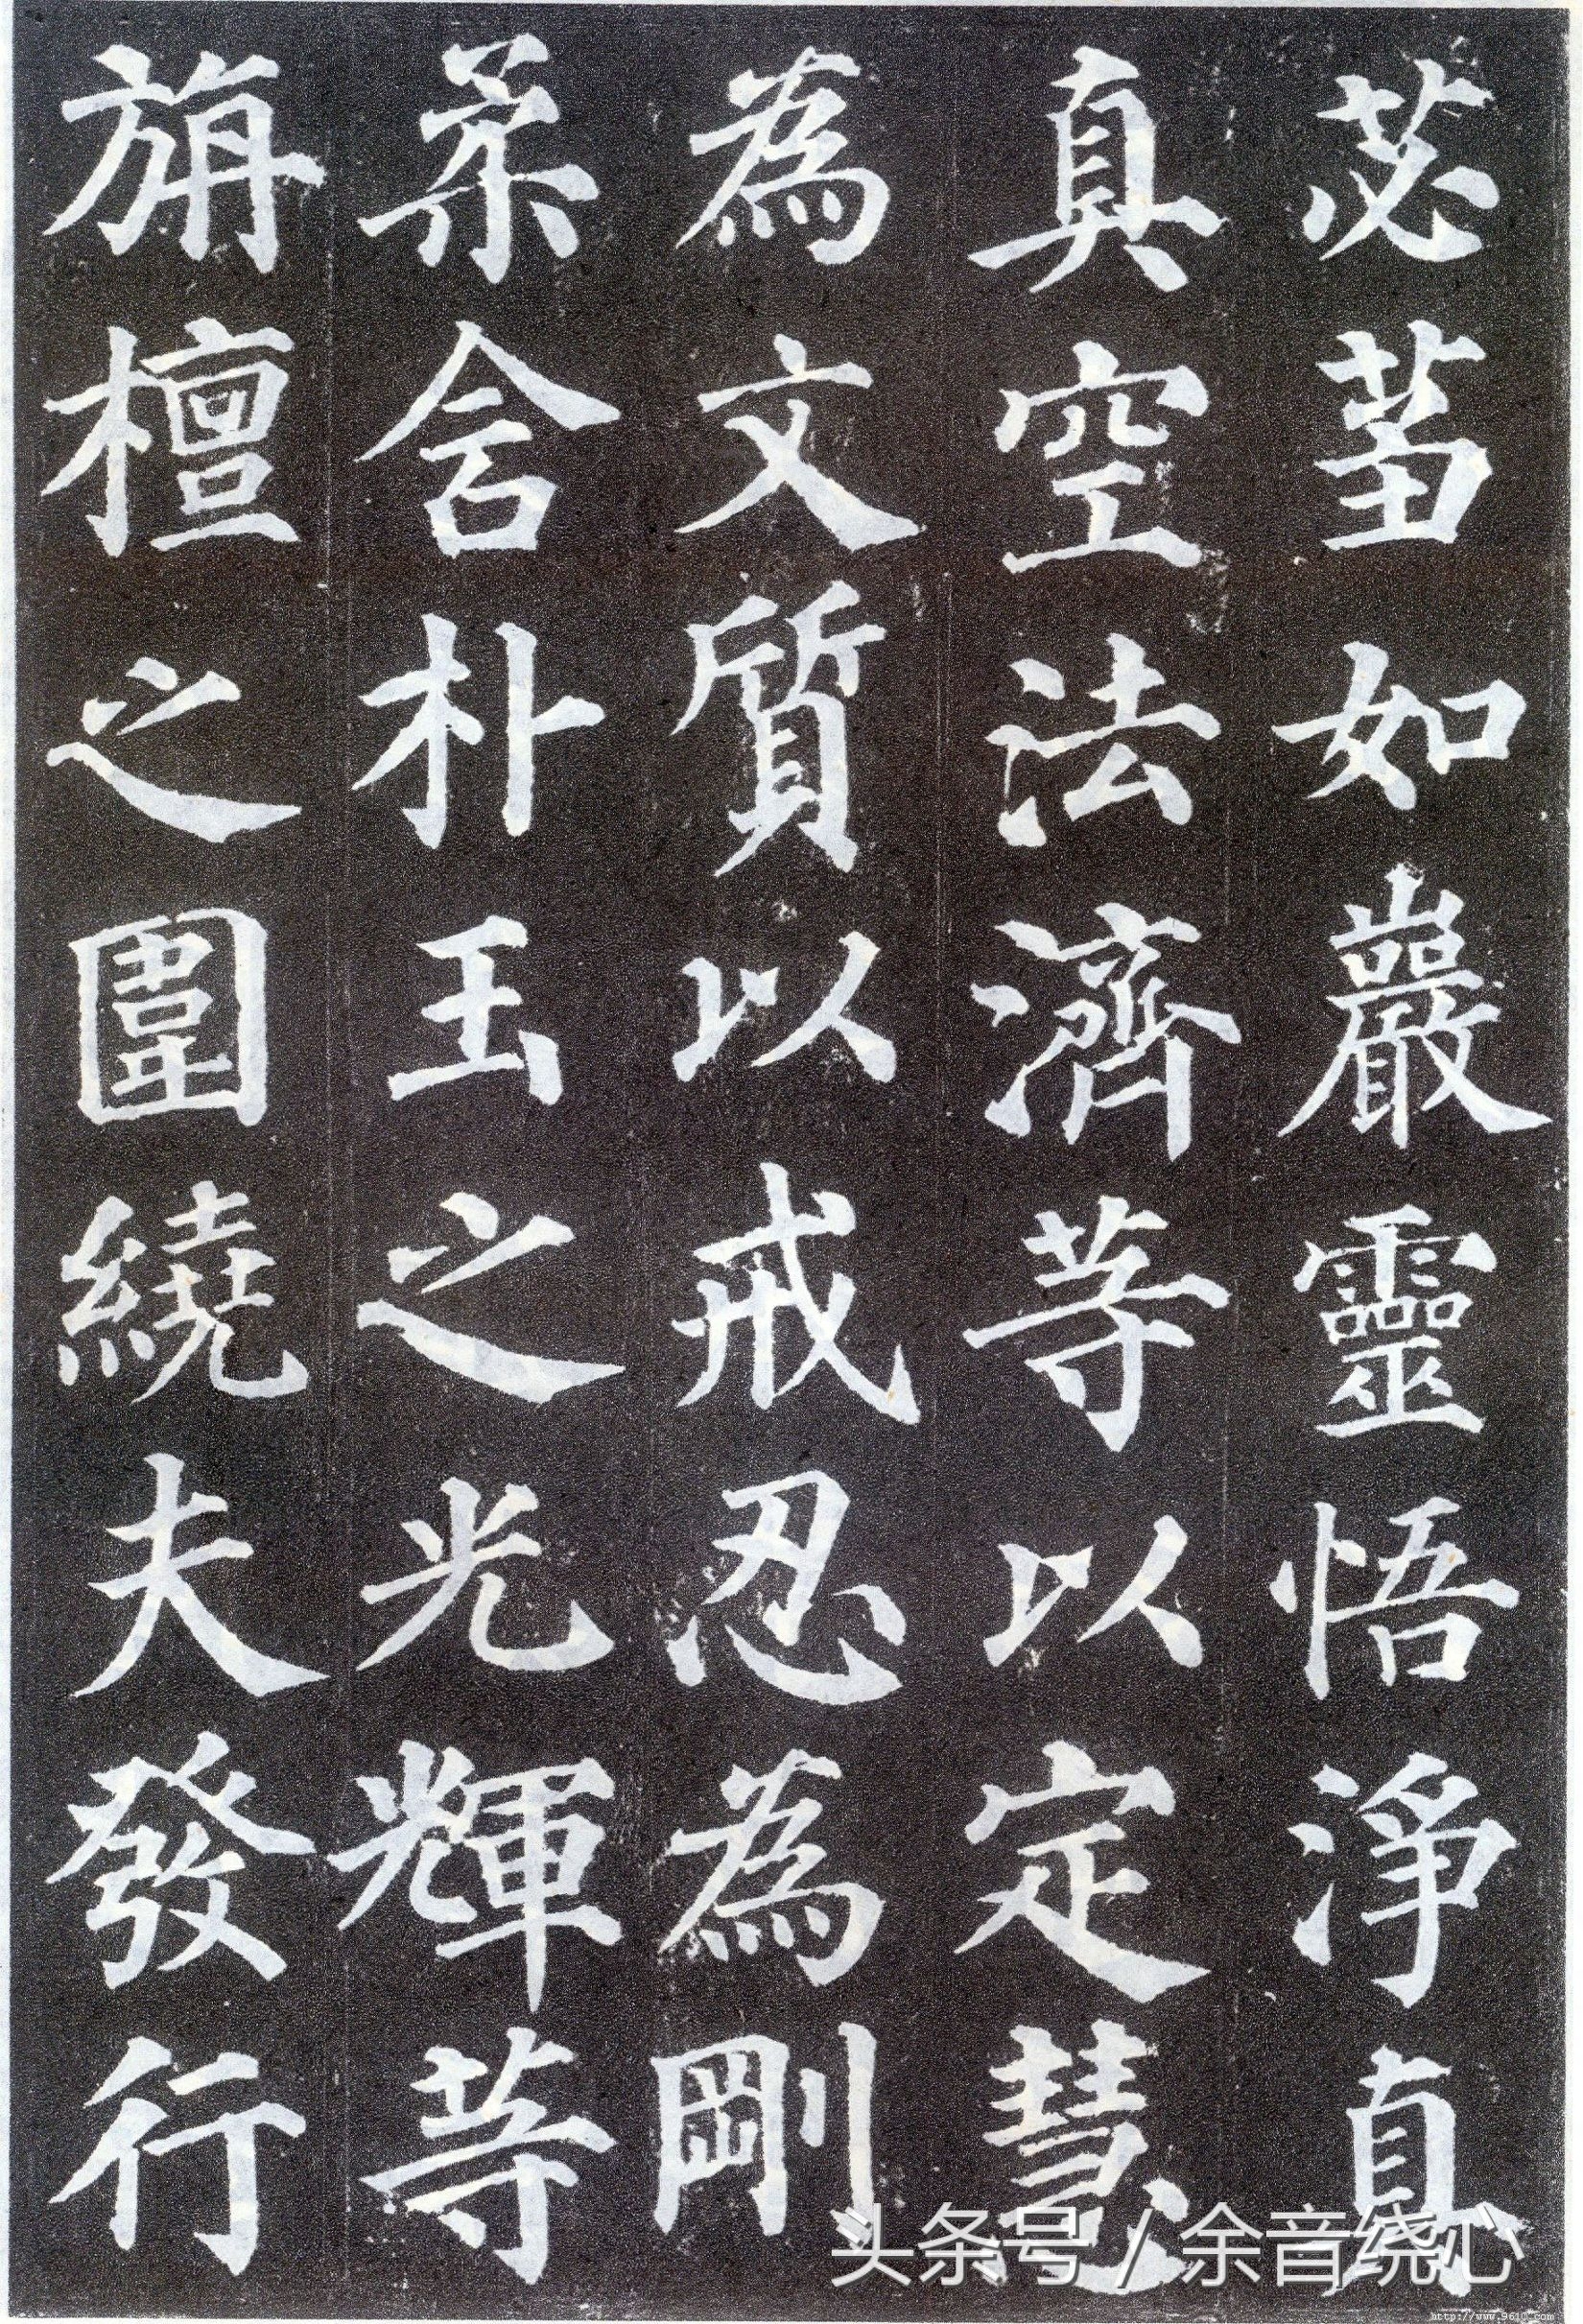 苾蒭如巖靈悟淨真
真空法濟等以定慧
為文質以戒忍為剛
柔含朴玉之光輝等
旃檀之圍繞夫發行
头条号 / 余音绕心
http://www.9610.com